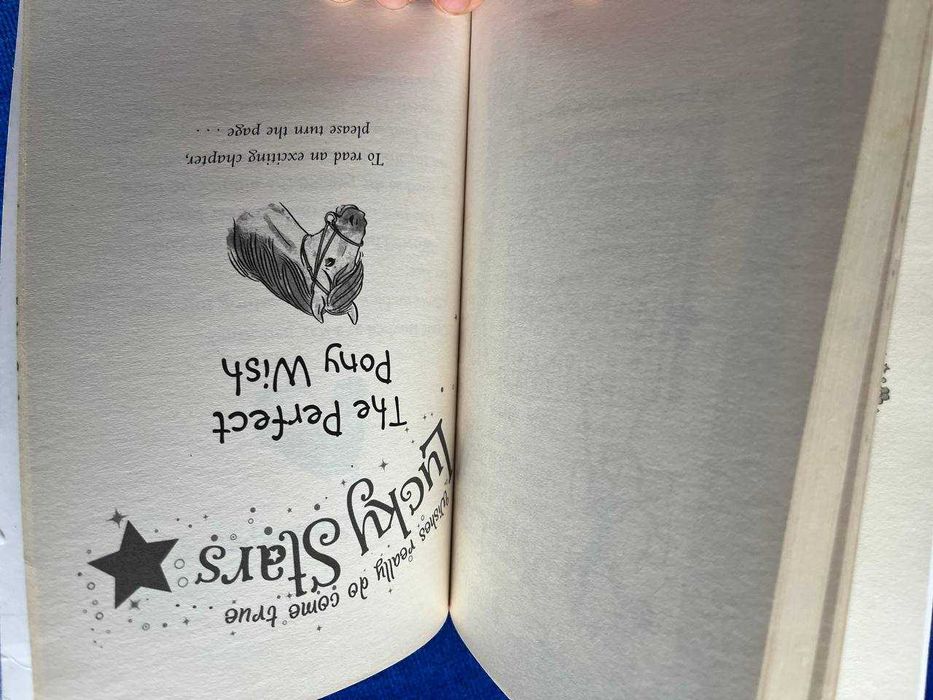 Wishes really do come true
Lucky Stars
The Perfect
Pony Wish
To read an exciting chapter,
please turn the page . . .